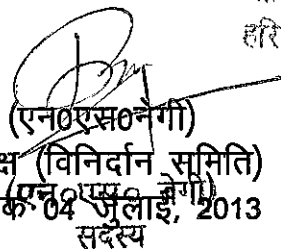 हरि
(एन0एस0नेगी)
क्ष (विनिर्दान समिति)
(एन0एस0 नेगी)
क 04 जुलाई, 2013
सदस्य